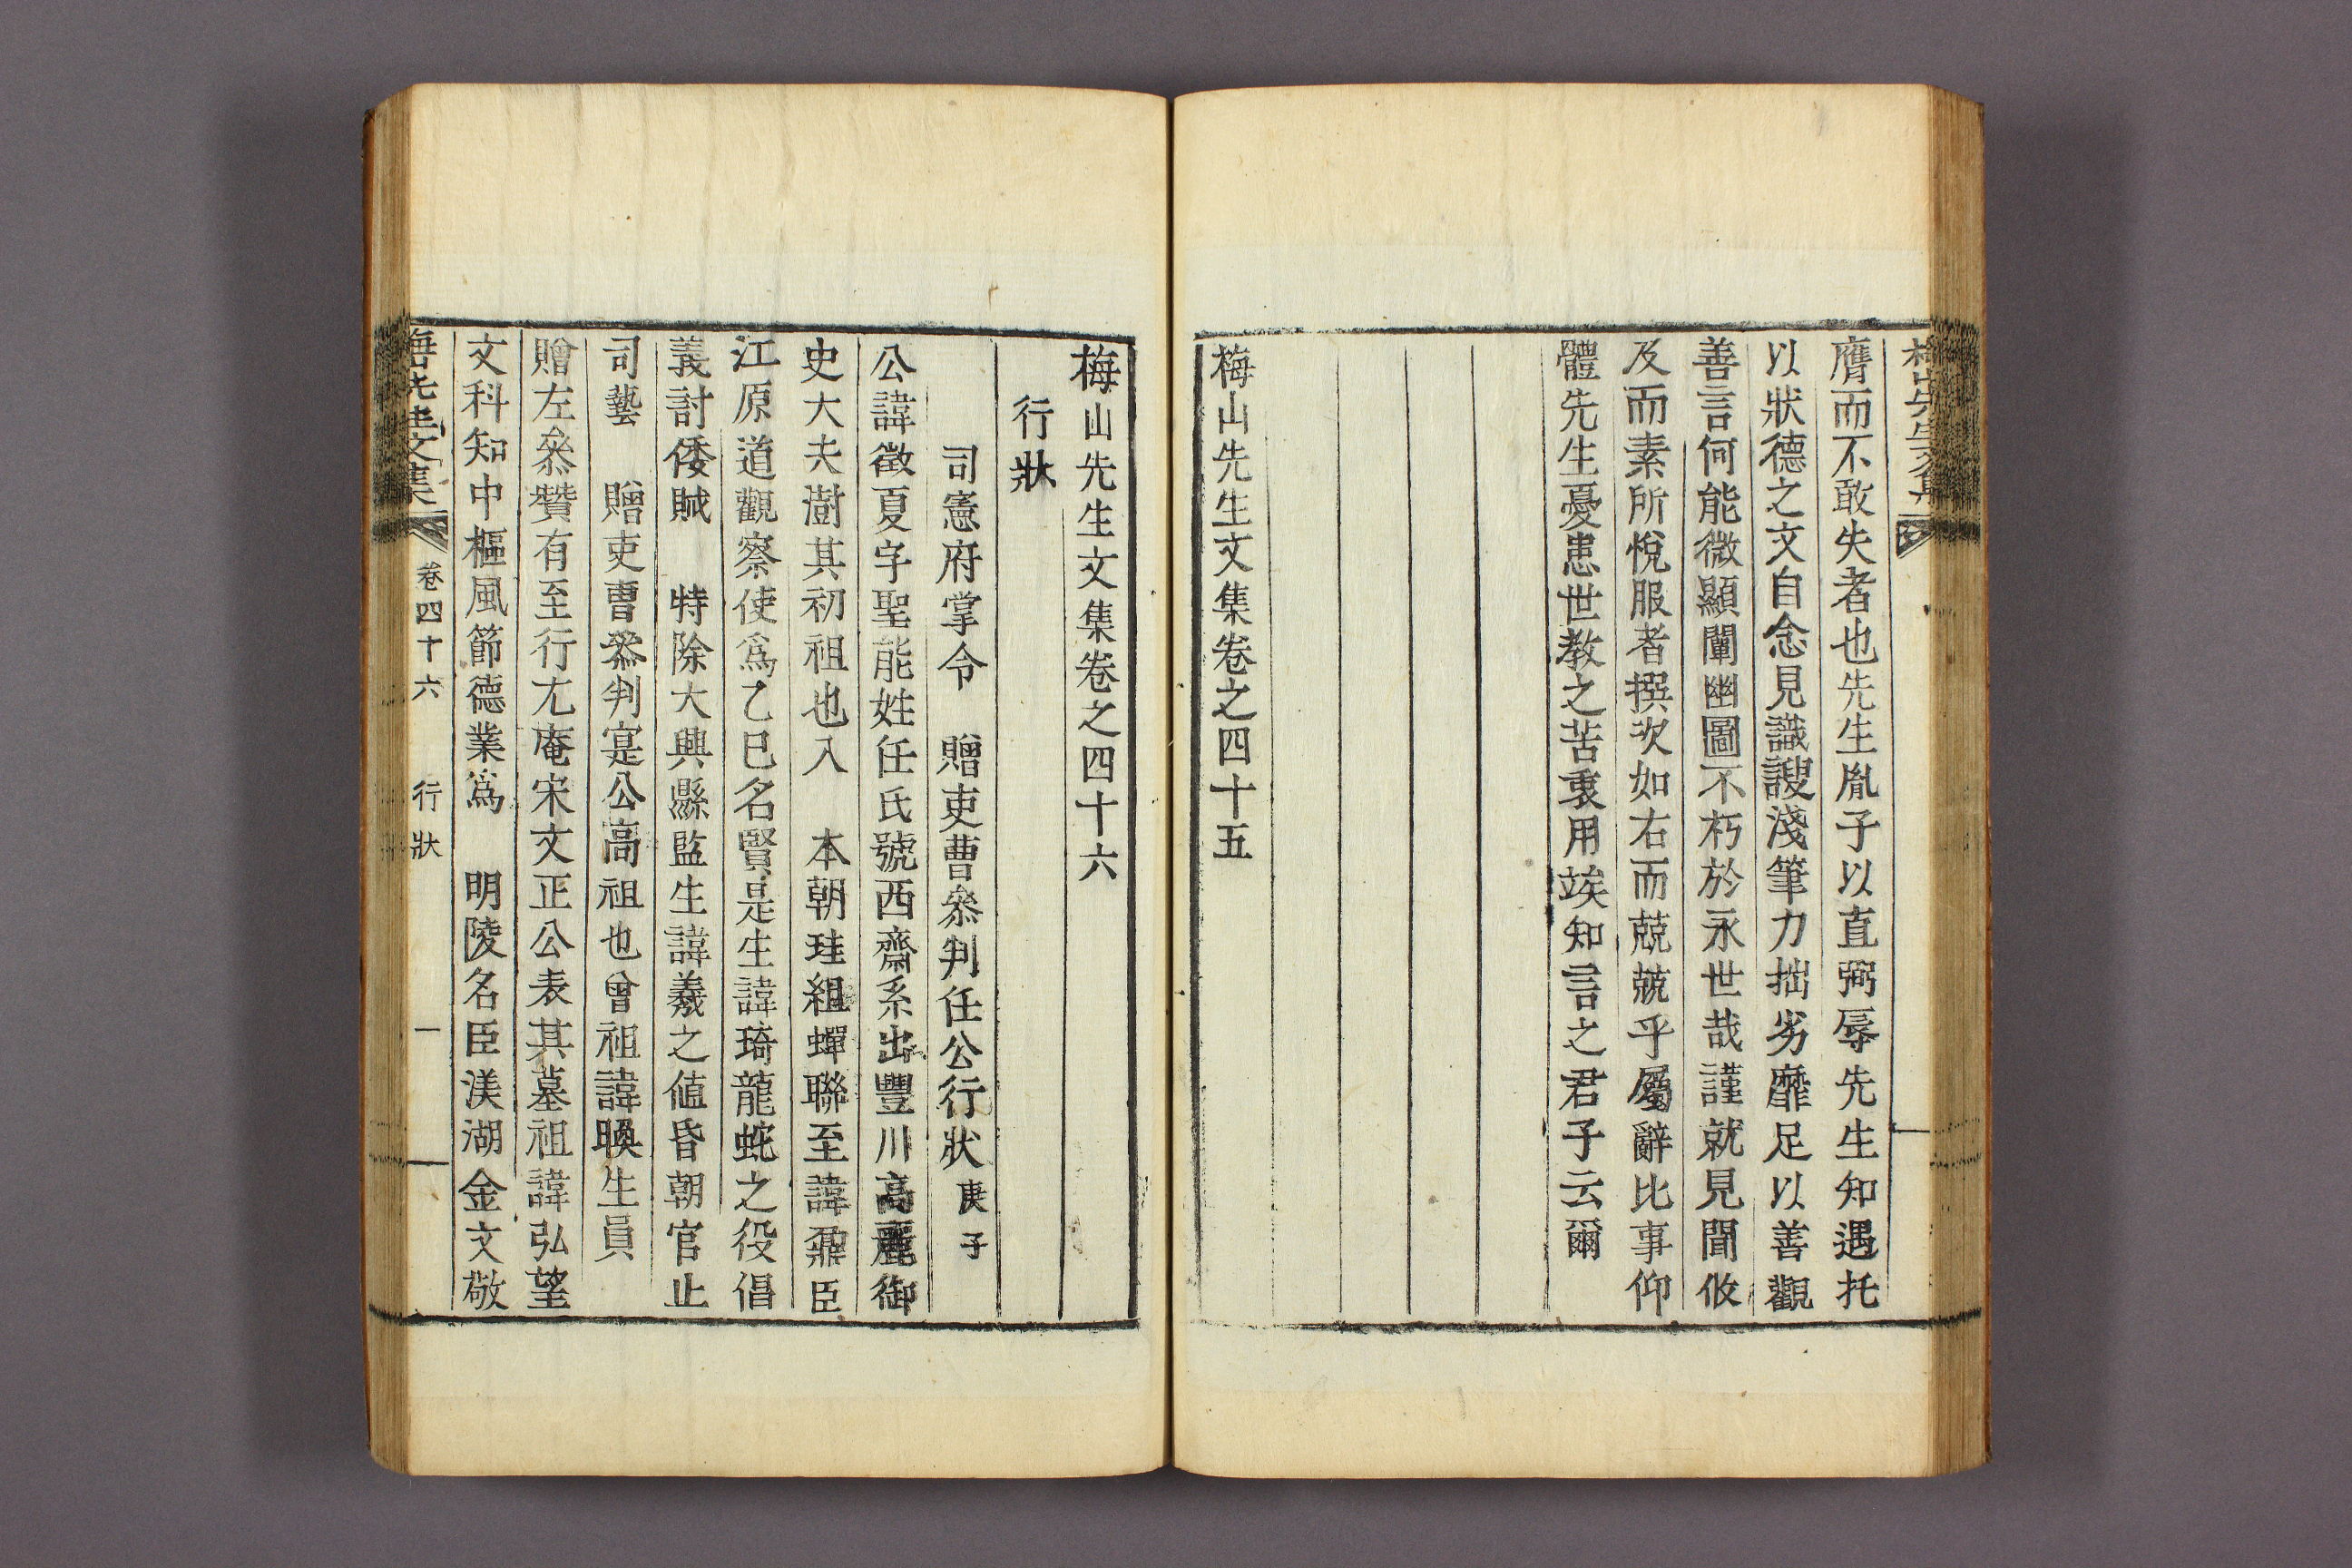 膺而不敢失者也先生胤子以直弼辱先生知遇托
以狀德之文自念見識謏淺筆力拙劣靡足以善觀
善言何能微顯闡幽圖不朽於永世哉謹就見聞攸
及而素所悅服者撰次如右而兢兢乎屬辭比事仰
體先生憂患世教之苦衷用竢知言之君子云爾
梅山先生文集卷之四十五
梅山先生文集卷之四十六
行狀
司憲府掌令 贈吏曹叅判任公行狀 庚子
公諱徵夏字聖能姓任氏號西齋系出豐川高麗御
史大夫澍其初祖也入 本朝珪組蟬聯至諱鼐臣
江原道觀察使爲乙巳名賢是生諱琦龍蛇之役倡
義討倭賊 特除大興縣監生諱羲之値昏朝官止
司藝 贈吏曹叅判寔公高祖也曾祖諱㬇生員
贈左叅贊有至行尤庵宋文正公表其墓祖諱弘望
文科知中樞風節德業爲 明陵名臣渼湖金文敬
梅山先生文集 卷四十六 行狀 一